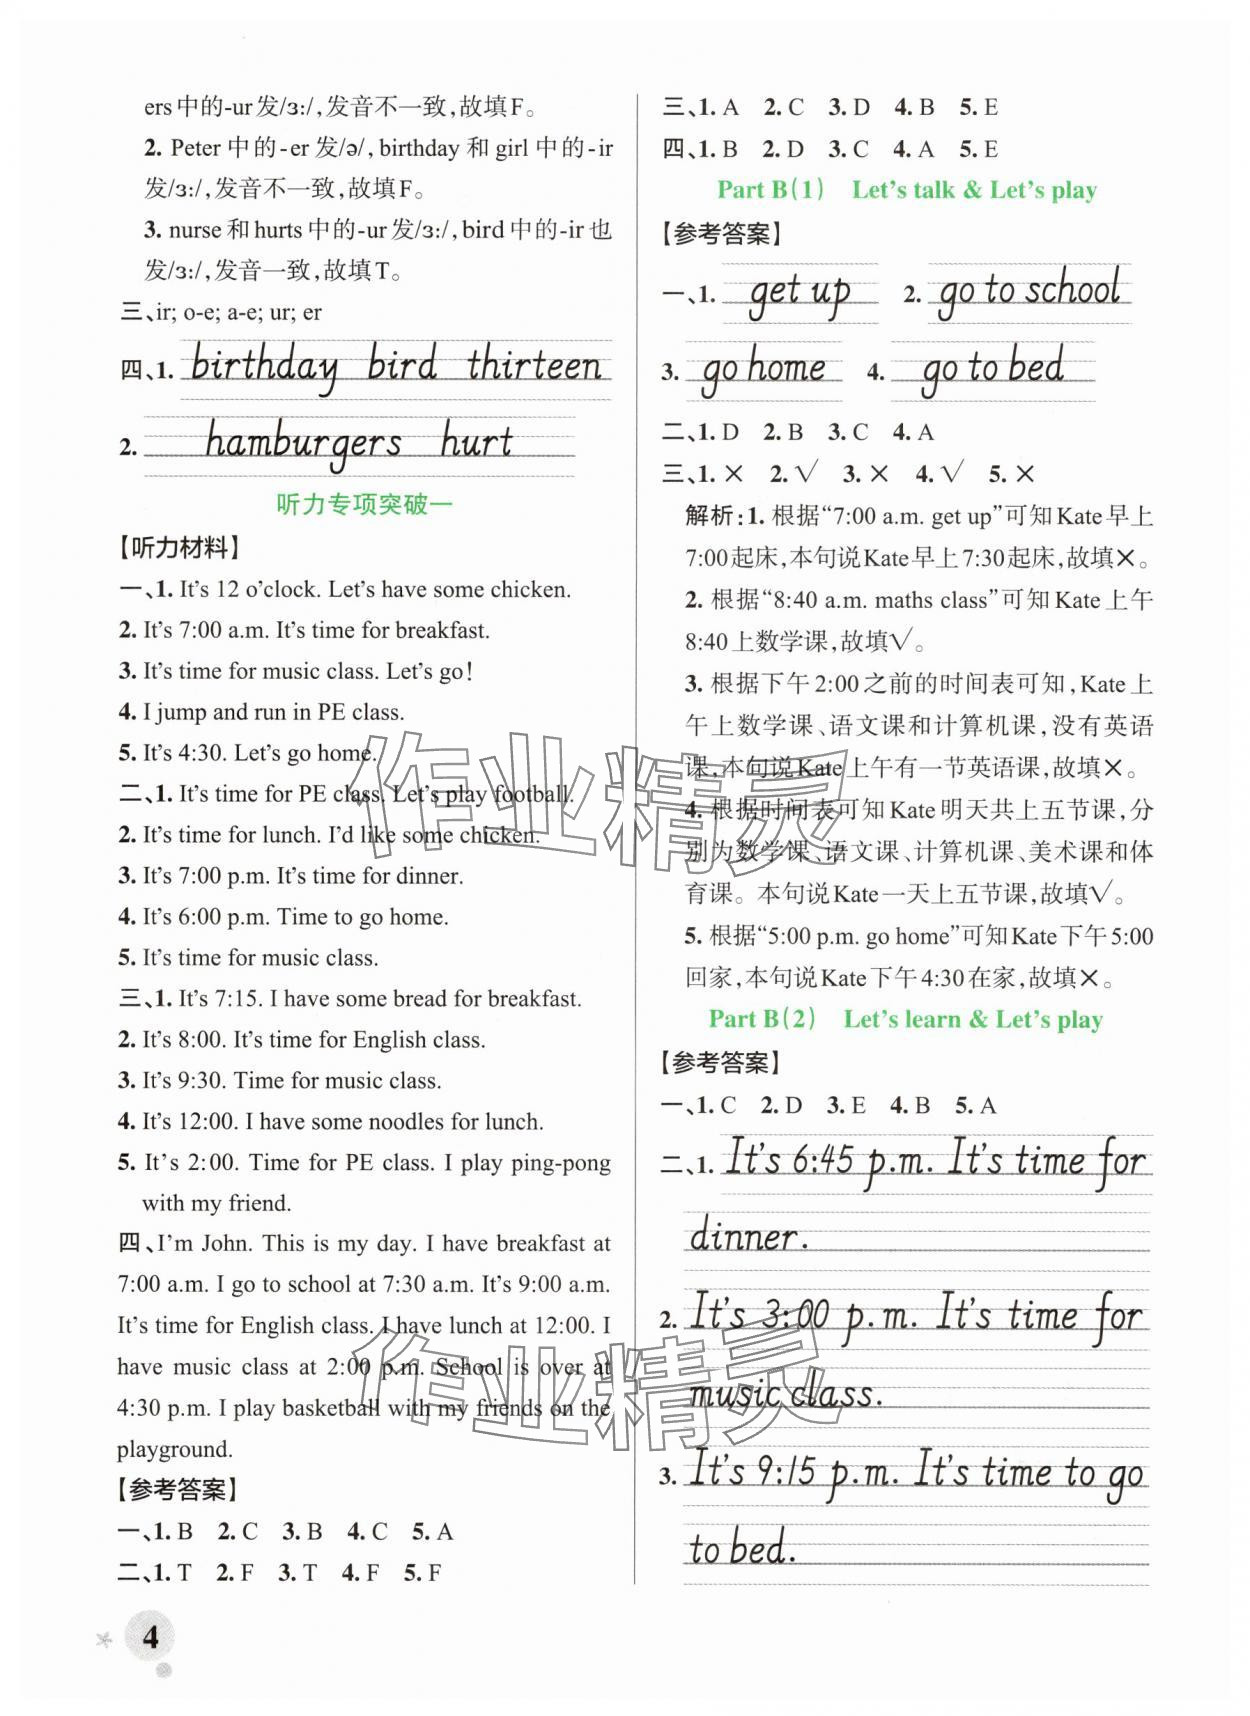 ers中的-ur发/ɜː/,发音不一致,故填F。
2. Peter 中的-er 发/ə/, birthday 和 girl 中的-ir
发/ɜː/,发音不一致,故填F。
3. nurse 和 hurts 中的-ur发/ɜː/, bird 中的-ir也
发/ɜː/,发音一致,故填T。
三、ir; o-e; a-e; ur; er
四、1. birthday bird thirteen
2. hamburgers hurt
听力专项突破一
【听力材料】
一、1. It's 12 o'clock. Let's have some chicken.
2. It's 7:00 a.m. It's time for breakfast.
3. It's time for music class. Let's go!
4. I jump and run in PE class.
5. It's 4:30. Let's go home.
二、1. It's time for PE class. Let's play football.
2. It's time for lunch. I'd like some chicken.
3. It's 7:00 p.m. It's time for dinner.
4. It's 6:00 p.m. Time to go home.
5. It's time for music class.
三、1. It's 7:15. I have some bread for breakfast.
2. It's 8:00. It's time for English class.
3. It's 9:30. Time for music class.
4. It's 12:00. I have some noodles for lunch.
5. It's 2:00. Time for PE class. I play ping-pong
with my friend.
四、I'm John. This is my day. I have breakfast at
7:00 a.m. I go to school at 7:30 a.m. It's 9:00 a.m.
It's time for English class. I have lunch at 12:00. I
have music class at 2:00 p.m. School is over at
4:30 p.m. I play basketball with my friends on the
playground.
【参考答案】
一、1. B 2. C 3. B 4. C 5. A
二、1. T 2. F 3. T 4. F 5. F
4
三、1. A 2. C 3. D 4. B 5. E
四、1. B 2. D 3. C 4. A 5. E
Part B(1) Let's talk & Let's play
【参考答案】
一、1. get up 2. go to school
3. go home 4. go to bed
二、1. D 2. B 3. C 4. A
三、1. × 2. √ 3. × 4. √ 5. ×
解析:1. 根据“7:00 a.m. get up”可知Kate早上
7:00起床,本句说Kate早上7:30起床,故填×。
2. 根据“8:40 a.m. maths class”可知Kate上午
8:40上数学课,故填√。
3. 根据下午2:00之前的时间表可知,Kate上
午上数学课、语文课和计算机课,没有英语
课,本句说Kate上午有一节英语课,故填×。
4. 根据时间表可知Kate明天共上五节课,分
别为数学课、语文课、计算机课、美术课和体
育课。本句说Kate一天上五节课,故填√。
5. 根据“5:00 p.m. go home”可知Kate下午5:00
回家,本句说Kate下午4:30在家,故填×。
Part B(2) Let's learn & Let's play
【参考答案】
一、1. C 2. D 3. E 4. B 5. A
二、1. It's 6:45 p.m. It's time for
dinner.
2. It's 3:00 p.m. It's time for
music class.
3. It's 9:15 p.m. It's time to go
to bed.
作业精灵
作业精灵